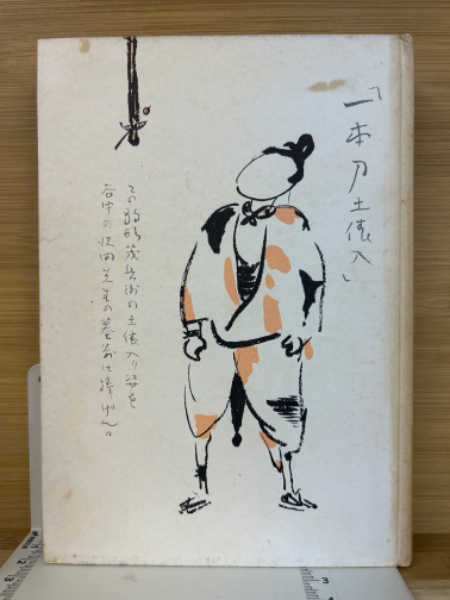 「一本刀土俵入」
この駒形茂兵衛の土俵入り姿を
谷中の沢田先生の墓前に捧げん。